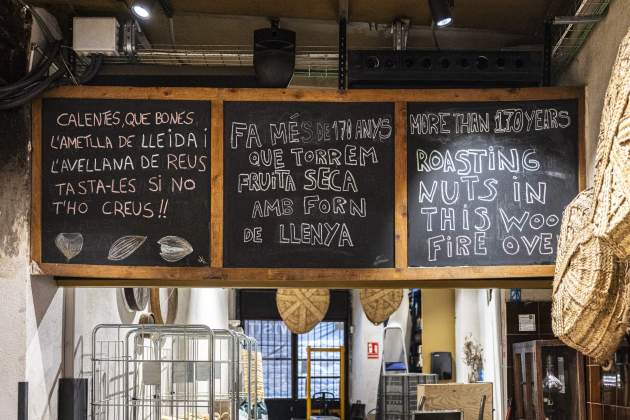 CALENTES, QUE BONES,
L'AMETLLA DE LLEIDA I
L'AVELLANA DE REUS
TASTA-LES SI NO
T'HO CREUS!!
FA MÉS DE 170 ANYS
QUE TORREM
FRUITA SECA
AMB FORN
DE LLENYA
MORE THAN 170 YEARS
ROASTING
NUTS IN
THIS WOO
FIRE OVE